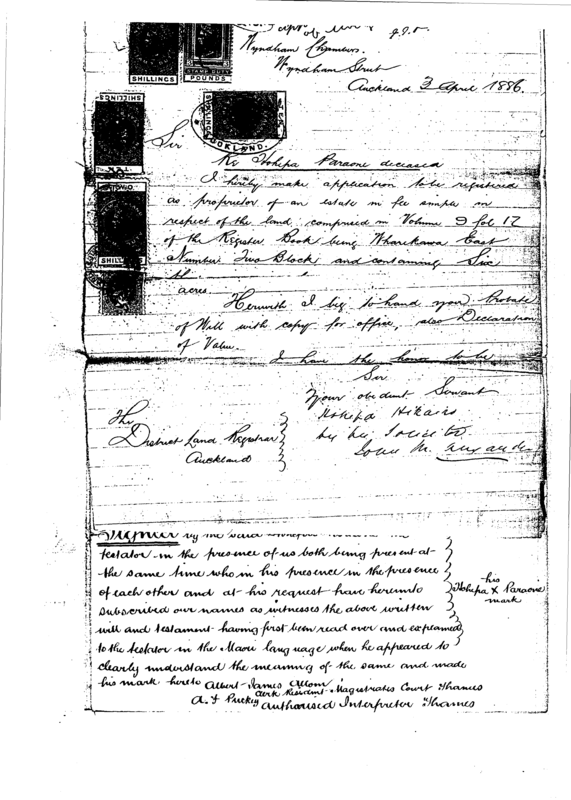 Wyndham Chambers.
Wyndham Street
Auckland 3 April 1886.
SHILLINGS
STAMP DUTY
POUNDS
SHILLINGS
AUCKLAND.
SHILL
Sir
Re Hohepa Paraone deceased
I hereby make application to be registered
as proprietor of an estate in fee simple in
respect of the land comprised in Volume 9 folo 17
of the Register Book being Wharikawa East
Number Two Block and containing Six
acres
Herewith I beg to hand you Probate
of Will with copy for office, also Declaration
of Value.
I have the honor to be
Sir
Your obedient Servant
Hohepa Hikairo
by his Solicitor
John M.
The
District Land Registrar
Auckland
by the said
testator in the presence of us both being present at
the same time who in his presence in the presence
of each other and at his request have hereunto
subscribed our names as witnesses the above written
will and testament having first been read over and explained
to the testator in the Maori language when he appeared to
clearly understand the meaning of the same and made
his mark hereto Albert James Allom
Clerk Resident Magistrates Court Thames
A. J Puckey Authorised Interpreter Thames
his
Hohepa X Paraone
mark